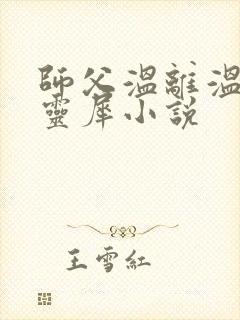 師父溫離溫
靈犀小說
王雪紅